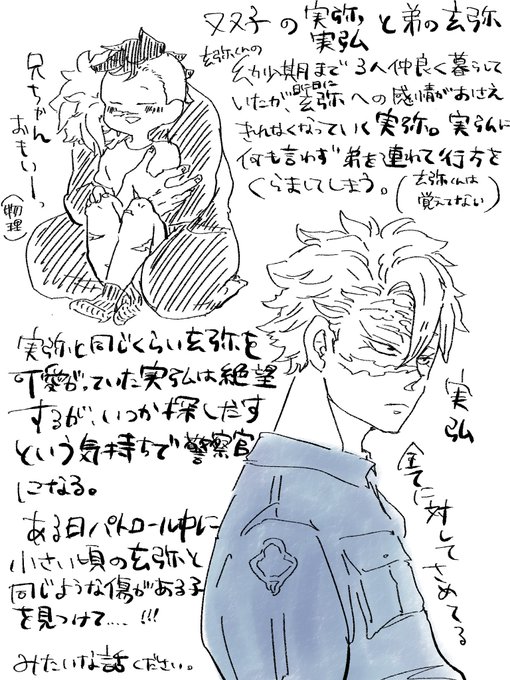 双子の実弥、実弘と弟の玄弥
玄弥くんの
幼少期まで3人仲良く暮らして
いたが、玄弥への感情がおさえ
きれなくなっていく実弥。実弘に
何も言わず弟を連れて行方を
くらましてしまう。(玄弥くんは覚えてない)
兄ちゃん
おもいーっ
(物理)
実弥と同じくらい玄弥を
可愛がっていた実弘は絶望
するが、いつか探しだす
という気持ちで警察官
になる。
ある日パトロール中に
小さい頃の玄弥と
同じような傷がある子
を見つけて.....!!!
みたいな話ください。
実弘
全てに対してさめてる